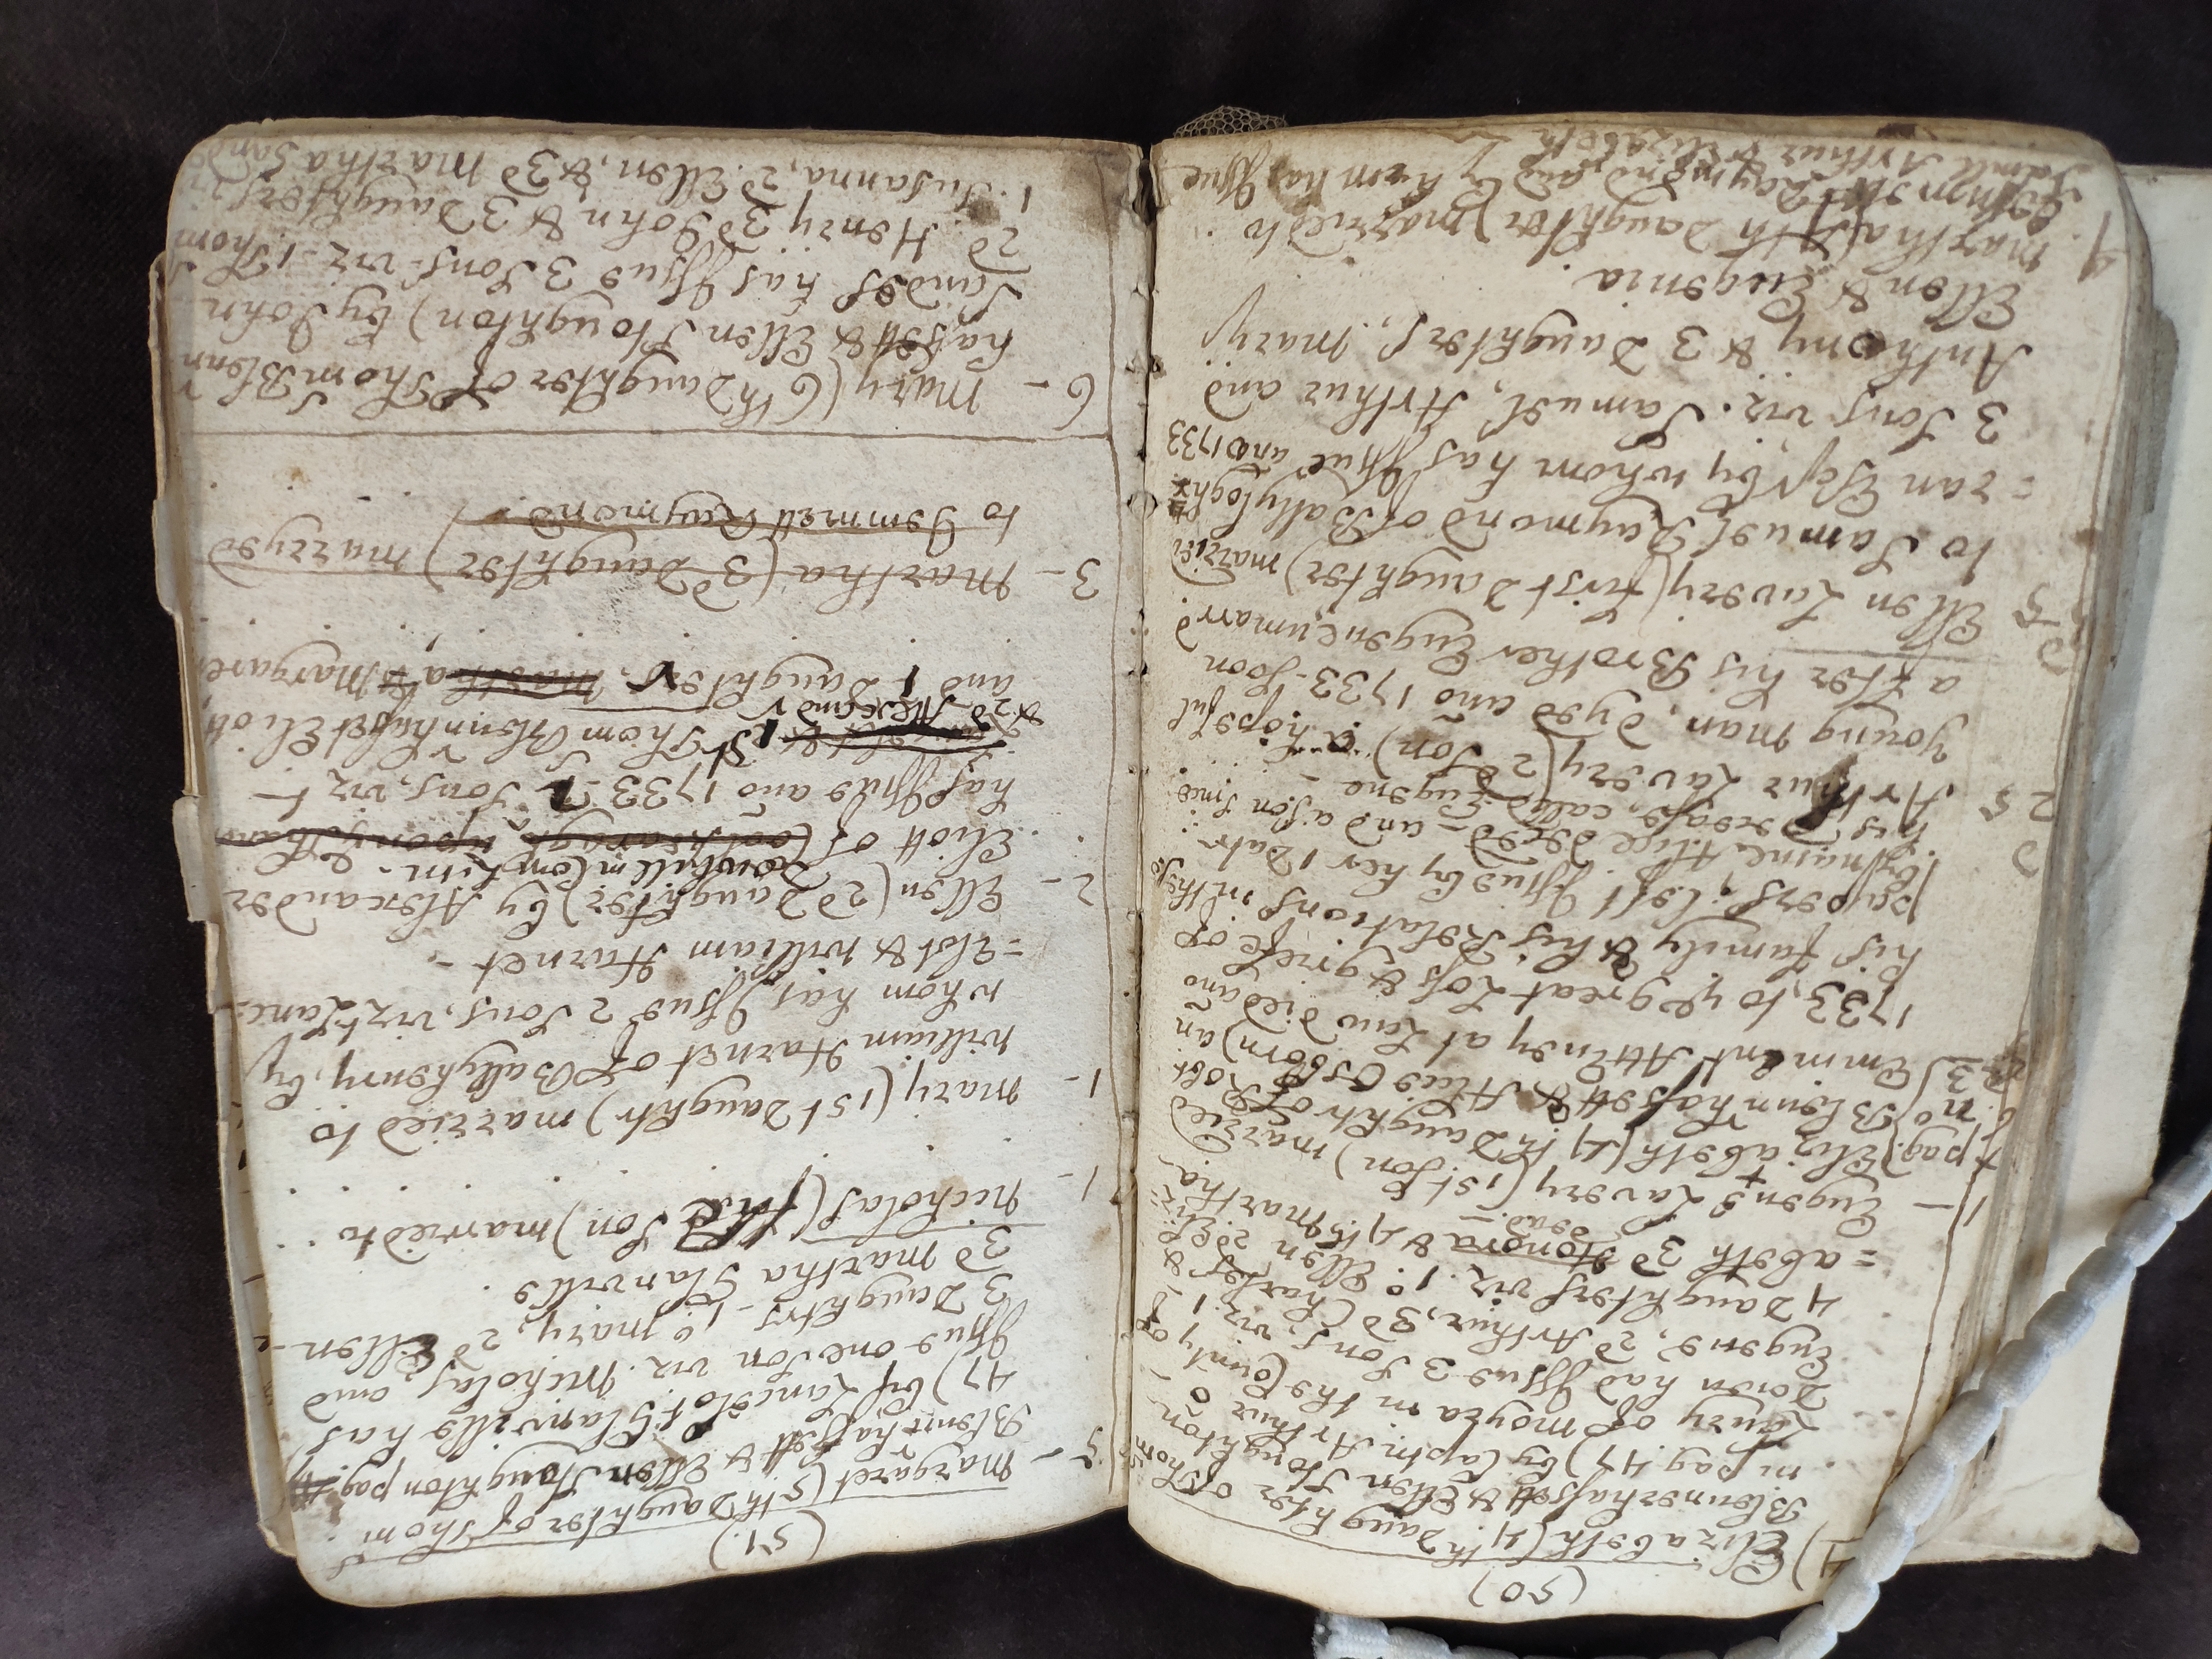 (50)
4) Elizabeth (4th Daughter of Thom
Blennerhassett & Ellen Stoughton
in pag. 47) by Captn. Arthur
Laury of Moyra in the County of
Down had Issue 3 Sons, viz. 1
Eugene, 2d Arthur, 3d Charles &
4 Daughters viz. 1o Ellen 2d Eliz
= abeth 3d Honora & 4th Martha
dead
1 - Eugene Lavery (1st Son) married
pag. Elizabeth (4th Daughtr of Robt
no Blennrhassett & Alice Osborn) an
Emminent Atturney at Law died ano
1733, to ye great Loss & grief of
his family & his Relations in the
papers, left Issue by her 1 Datr
by name, Alice decsd - and a son since
his decease, called Eugene
2 Arthur Lavery (2d Son) a hopeful
young man, dyed ano 1733 - soon
after his Brother Eugene, unmarrd
Ellen Lavery (first Daughter) married
to Samuel Raymond of Ballylogh
= ran Esqr, by whom has Issue ano 1733
3 Sons viz. Samuel, Arthur and
Anthony & 3 Daughters, Mary,
Ellen & Eugenia.
4 Martha (4th Daughter) married to
Raymond, and by him has Issue
Saml Arthur & Elizabeth
(51.)
5 - Margaret (5th Daughter of Thom
Blennrhassett & Ellen Stoughton pag.
47) by Lancelot Glanville has
Issue one Son viz. Nicholas, and
3 Daughtrs - 1o Mary, 2d Ellen -
3d Martha Glanville
1 - Nicholas (the Son) married to . . .
1 - Mary (1st Daughtr) married to
William Harnet of Ballyhenry, by
whom has Issue 2 Sons, vizt Lance
= lot & William Harnet -
2 - Ellen (2d Daughter) by Alexander
Eliott of
has Issue ano 1733 Sons, vizt
1st Thom Blennrhasset Eliott,
& 2d Alexandr
and 1 Daughter, Martha & Margaret
3 - Martha (3d Daughter) marryed
to Jemmett Raymond.
6 - Mary (6th Daughter of Thom Blenn
hassett & Ellen Stoughton) by John
Sandes has Issue 3 Sons - viz - 1 Thom
2d. Henry 3d John & 3 Daughters,
1. Susanna, 2d Ellen, & 3d Martha Sands